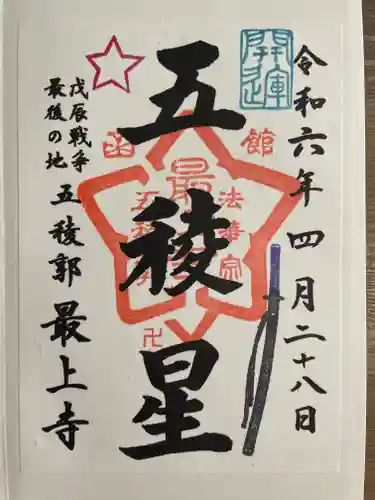 開運
令和六年四月二十八日
五稜星
函館
法華宗
最
卍
戊辰戦争
最後の地
五稜郭 最上寺